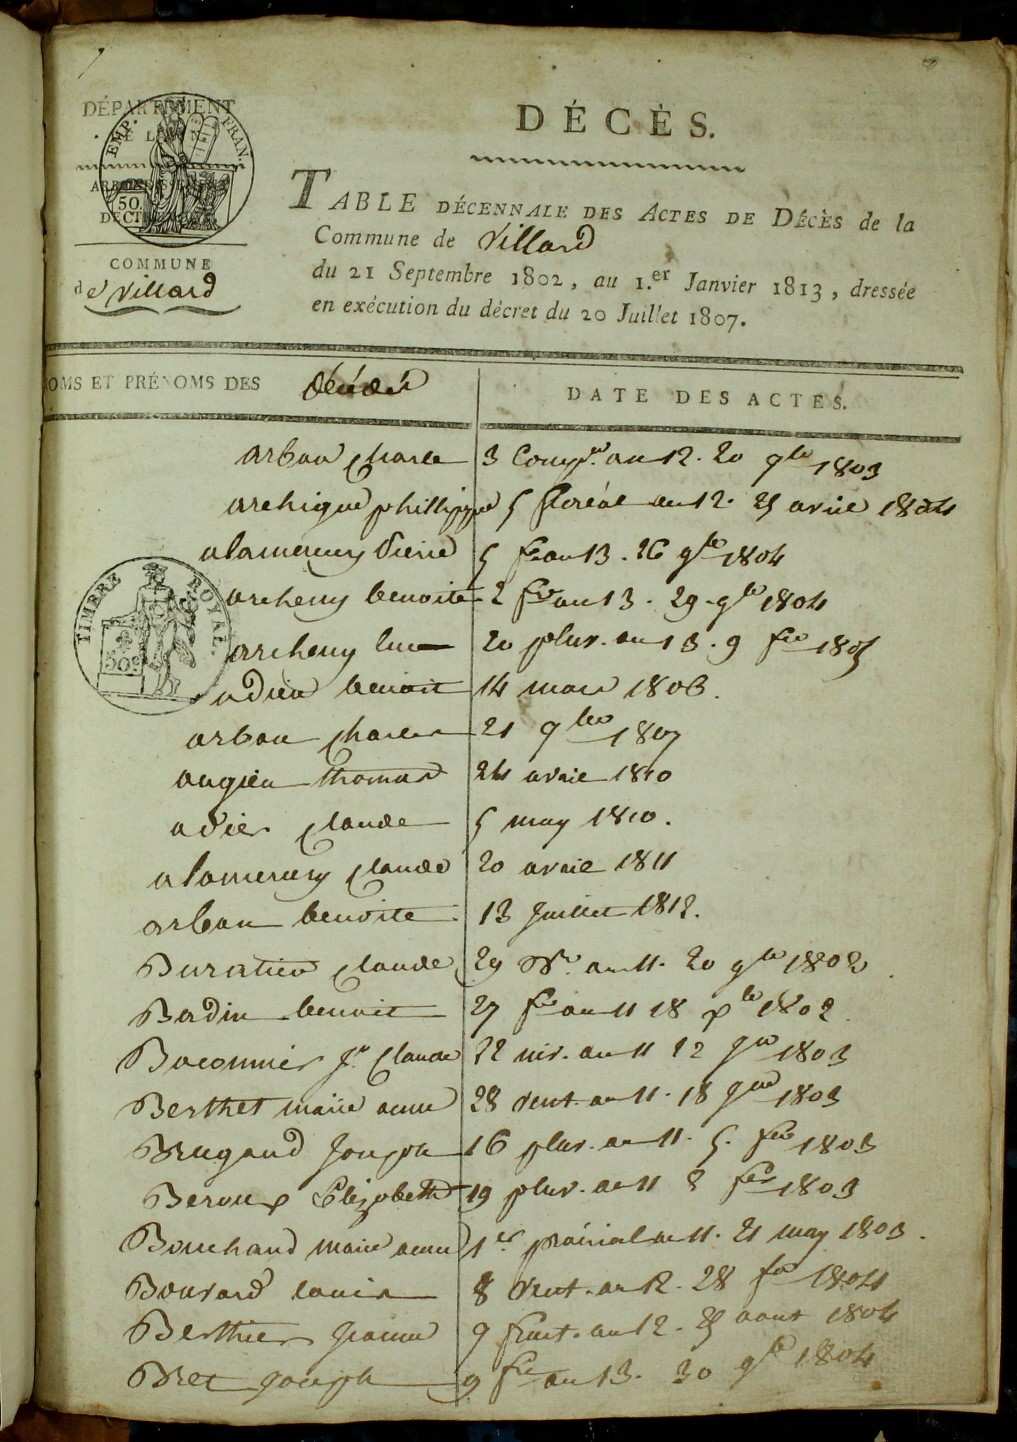 DÉPARTEMENT
DE L'AIN
EMP. FRAN.
50.
COMMUNE
de Villard
DÉCÈS.
TABLE DÉCENNALE DES ACTES DE DÉCÈS de la
Commune de Villard
du 21 Septembre 1802, au 1.er Janvier 1813, dressée
en exécution du décret du 20 Juillet 1807.
NOMS ET PRÉNOMS DES décédés
DATE DES ACTES.
arban Charle 3 Comp.re an 12. 20 9bre 1803
phillippe 5 floréal an 12. 25 avril 1804
alamercery Pierre 5 fre an 13. 26 9bre 1804
archeny benoite 2 fre an 13. 29 9bre 1804
TIMBRE ROYAL.
50c
archeny luc 20 pluv. an 13. 9 fer 1805
benoit 14 mars 1806.
arban Charles 21 9bre 1807
augier thomas 24 avril 1810
adier Claude 5 may 1810.
alamercery Claude 20 avril 1811
arban benoite 13 Juillet 1812.
Claude 29 an 11. 20 9bre 1802
Badin benoit 27 fre an 11 18 Xbre 1802
Baconnier Claude 22 niv. an 11 12 Jer 1803
Berthet marie anne 28 an 11. 18 Jer 1803
Brugand Joseph 16 pluv. an 11. 5. fer 1803
Beroux Elizabeth 19 pluv. an 11 8 fer 1803
Bouchand marie anne 1er prairial an 11. 21 may 1803.
Bouvard louis 8 vent. an 12. 28 fer 1804
Berthier Jeanne 9 fruct. an 12. 25 aout 1804
Bret Joseph 9 fre an 13. 30 9bre 1804